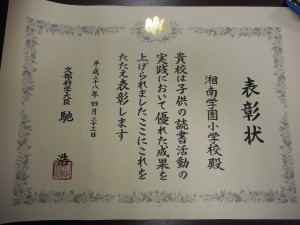 表彰状
湘南学園小学校殿
貴校は子供の読書活動の
実践において優れた成果を
上げられましたここにこれを
たたえ表彰します
平成二十八年四月二十三日
文部科学大臣 馳 浩